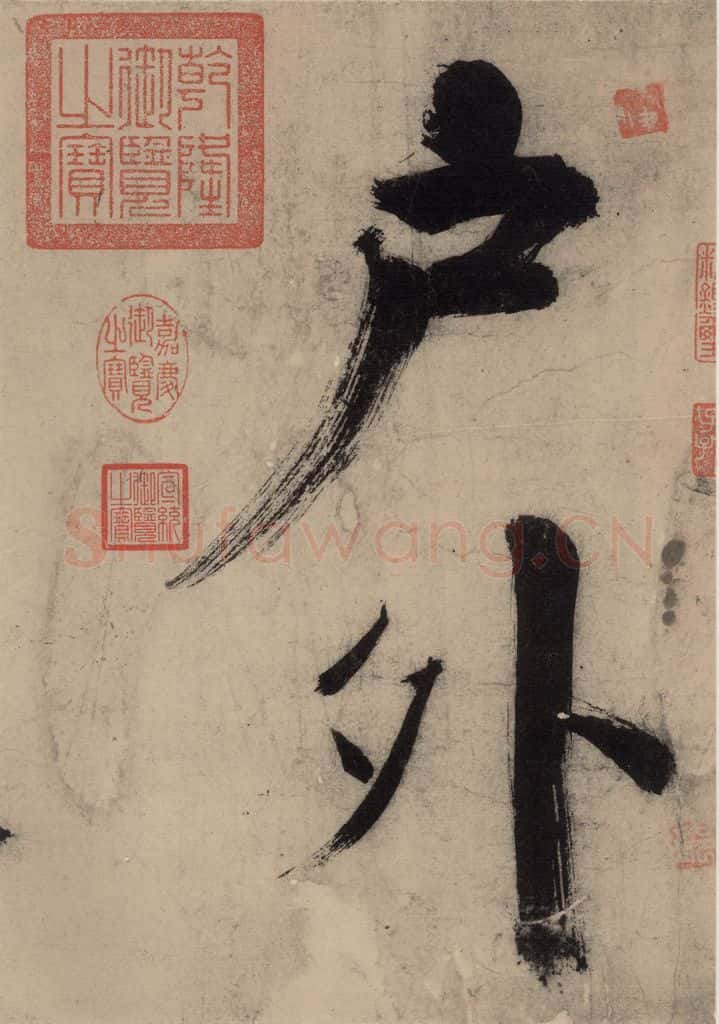 户外
乾隆
御覽
之寶
嘉慶
御覽
之寶
宣統
御覽
之寶
shufawang.CN